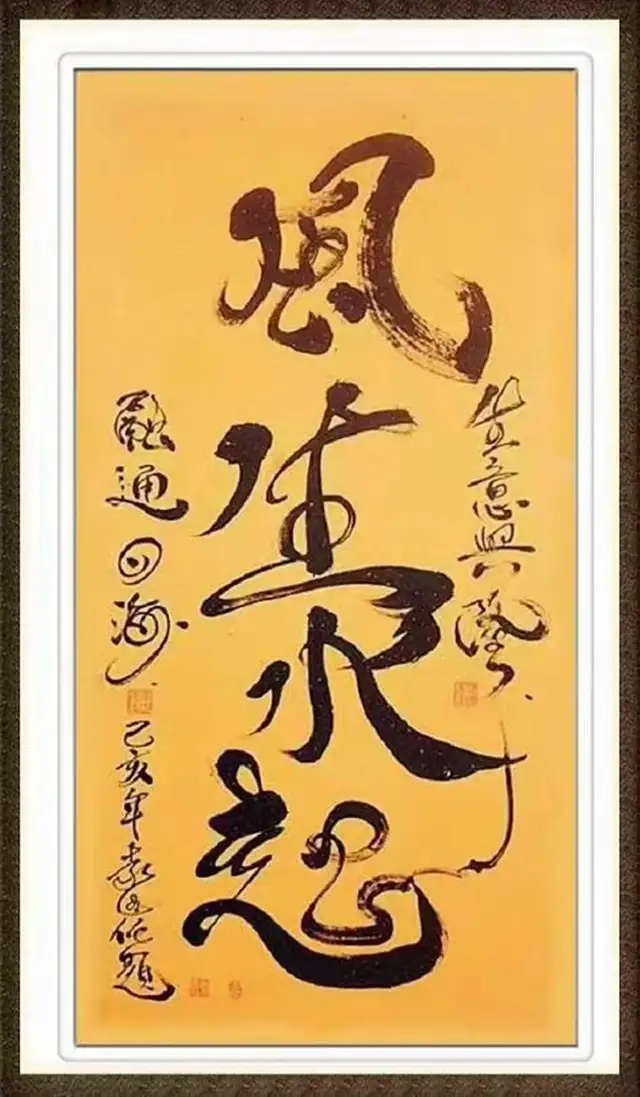 生意興隆
風生水起
融通四海
己亥年題